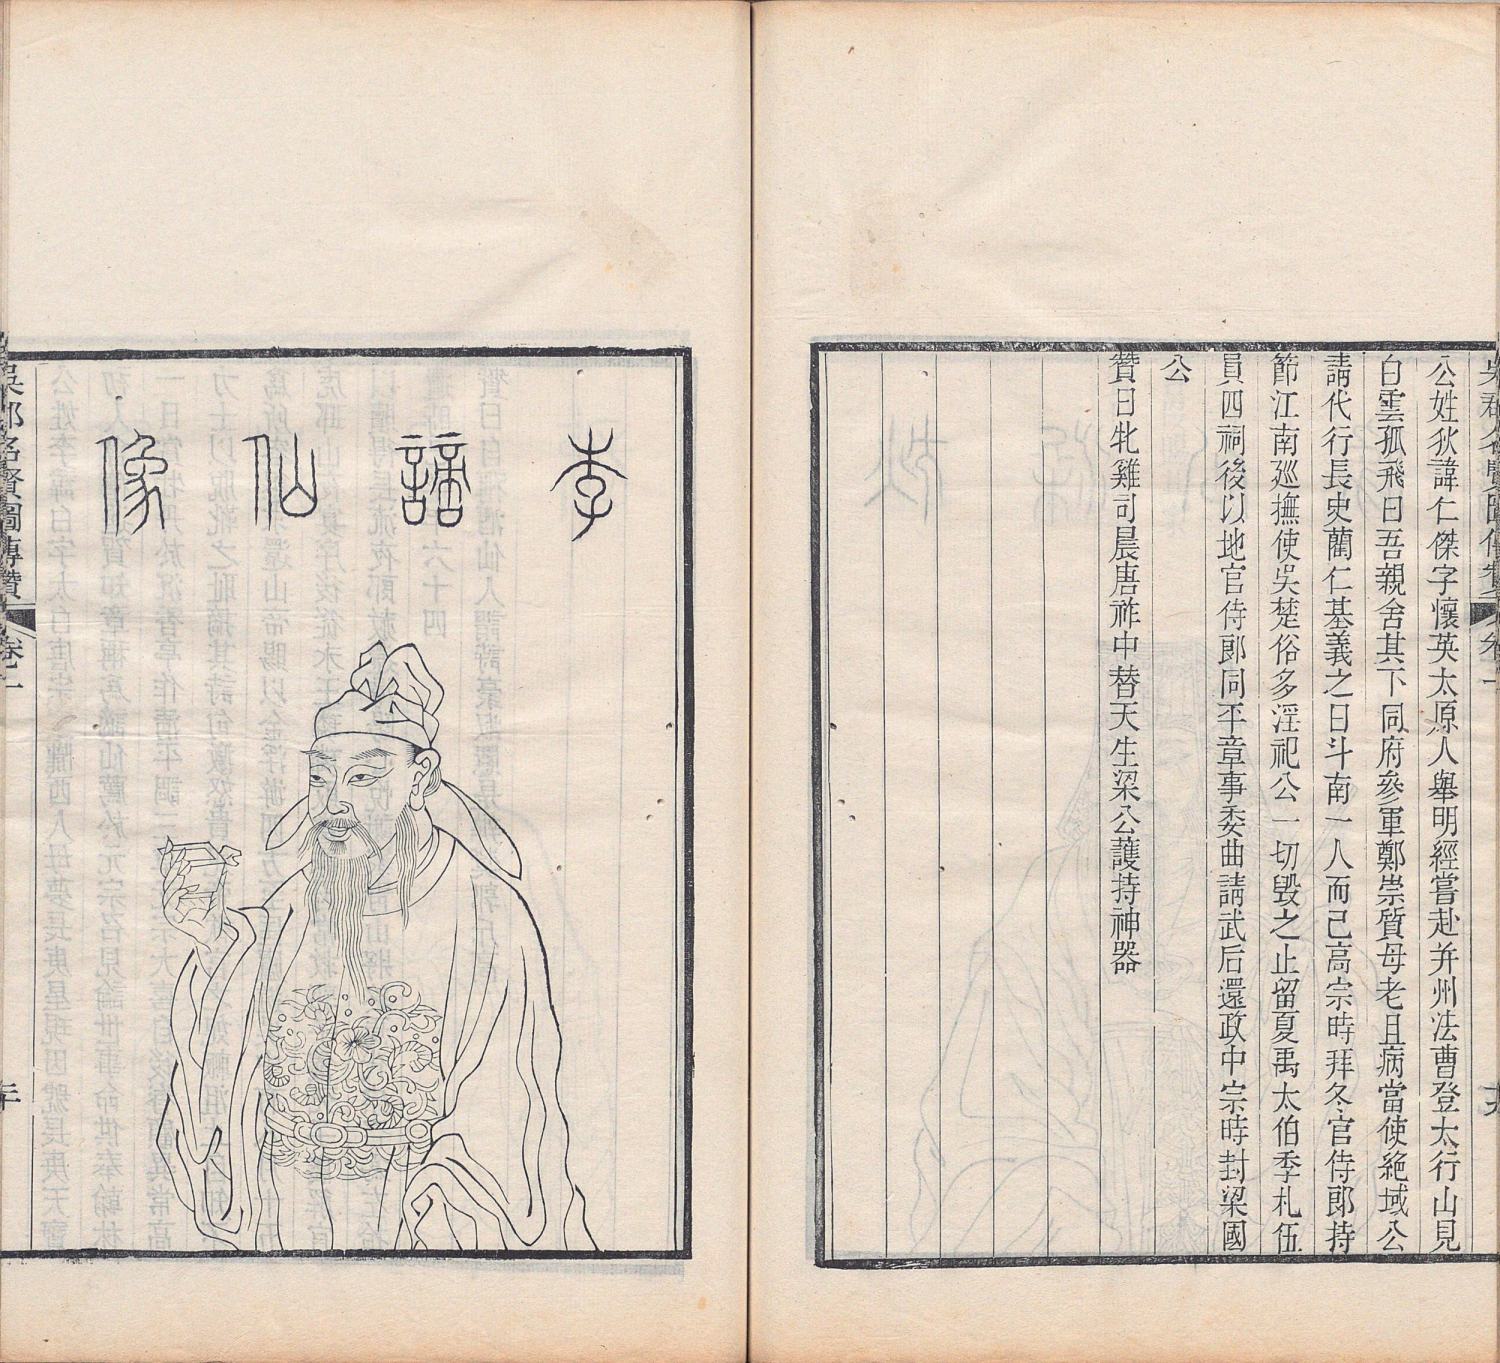 吳郡名賢圖傳贊
卷一
十九
公姓狄諱仁傑字懷英太原人舉明經嘗赴并州法曹登太行山見
白雲孤飛曰吾親舍其下同府參軍鄭崇質母老且病當使絶域公
請代行長史藺仁基義之曰斗南一人而已高宗時拜冬官侍郎持
節江南廵撫使吳楚俗多淫祀公一切毁之止留夏禹太伯季札伍
員四祠後以地官侍郎同平章事委曲請武后還政中宗時封梁國
公
贊曰牝雞司晨唐祚中替天生梁公護持神器
李謫仙像
吳郡名賢圖傳贊
卷一